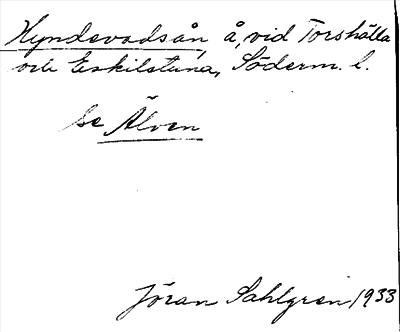 Hyndevadsån, å, vid Torshälla
och Eskilstuna, Söderm. l.
se Älven
Jöran Sahlgren 1933